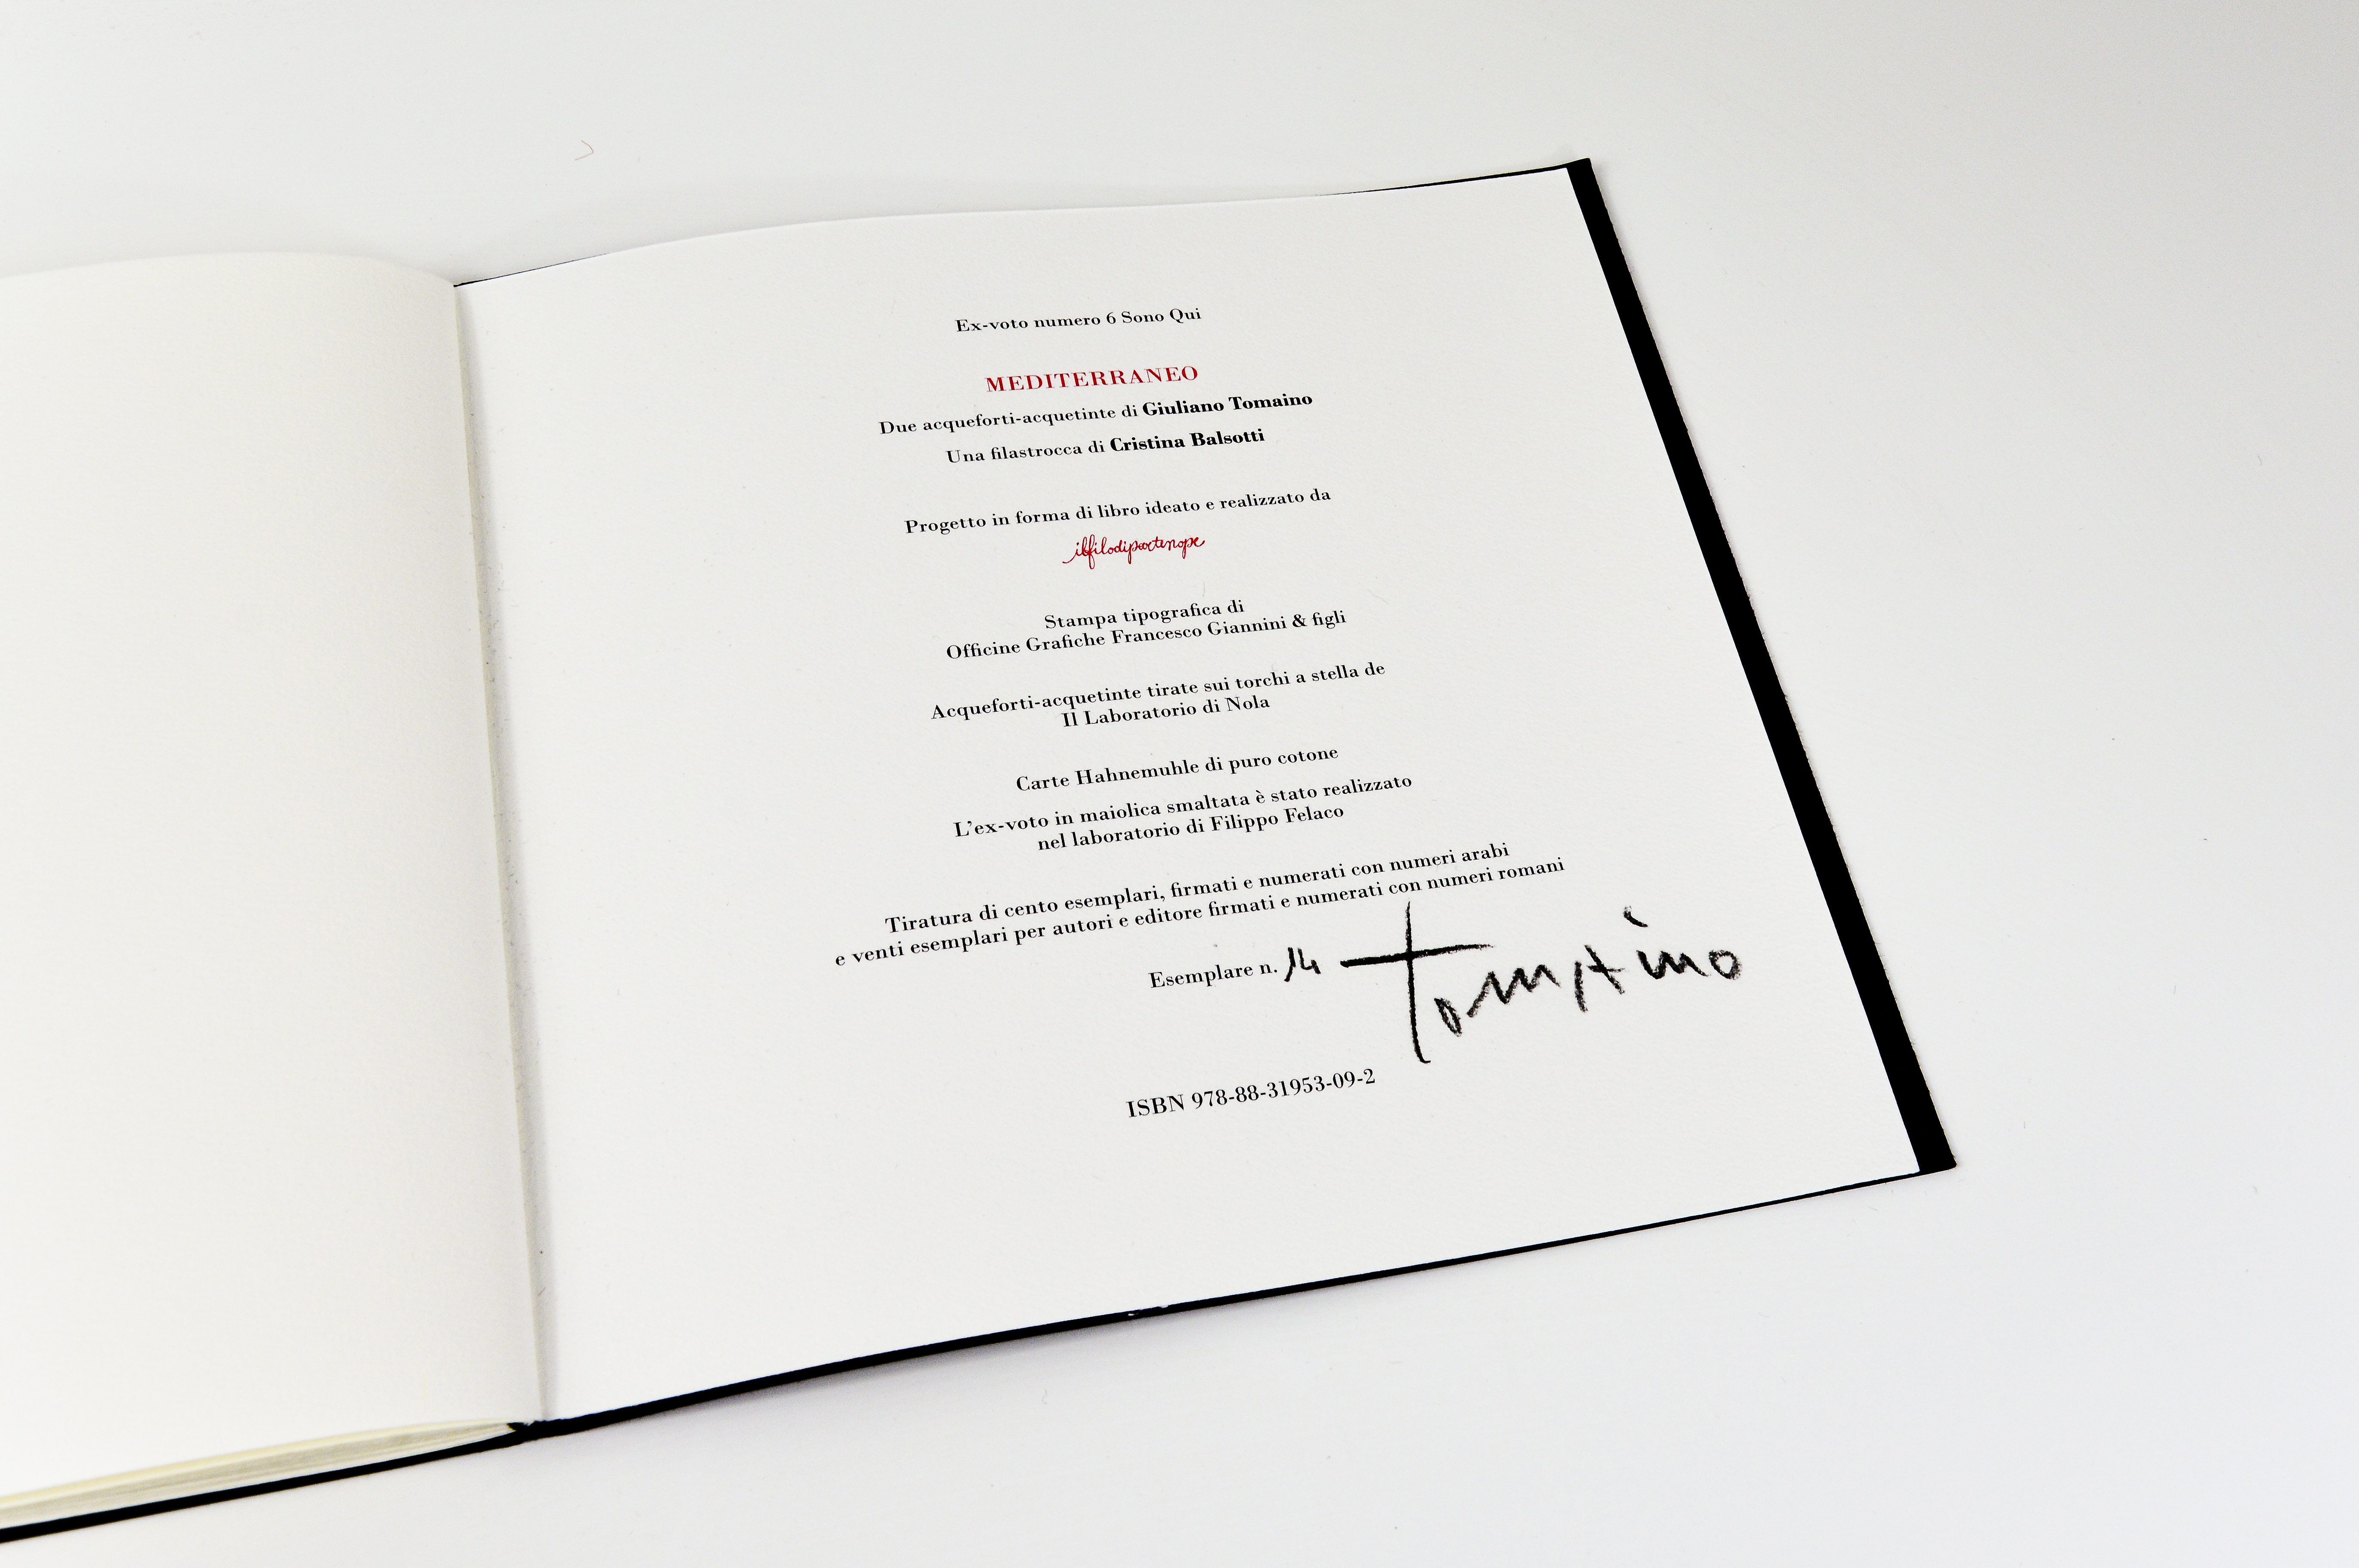 Ex-voto numero 6 Sono Qui
MEDITERRANEO
Due acqueforti-acquetinte di Giuliano Tomaino
Una filastrocca di Cristina Balsotti
Progetto in forma di libro ideato e realizzato da
ilfilodipartenope
Stampa tipografica di
Officine Grafiche Francesco Giannini & figli
Acqueforti-acquetinte tirate sui torchi a stella de
Il Laboratorio di Nola
Carte Hahnemuhle di puro cotone
L'ex-voto in maiolica smaltata è stato realizzato
nel laboratorio di Filippo Felaco
Tiratura di cento esemplari, firmati e numerati con numeri arabi
e venti esemplari per autori e editore firmati e numerati con numeri romani
Esemplare n. 14 Tomaino
ISBN 978-88-31953-09-2